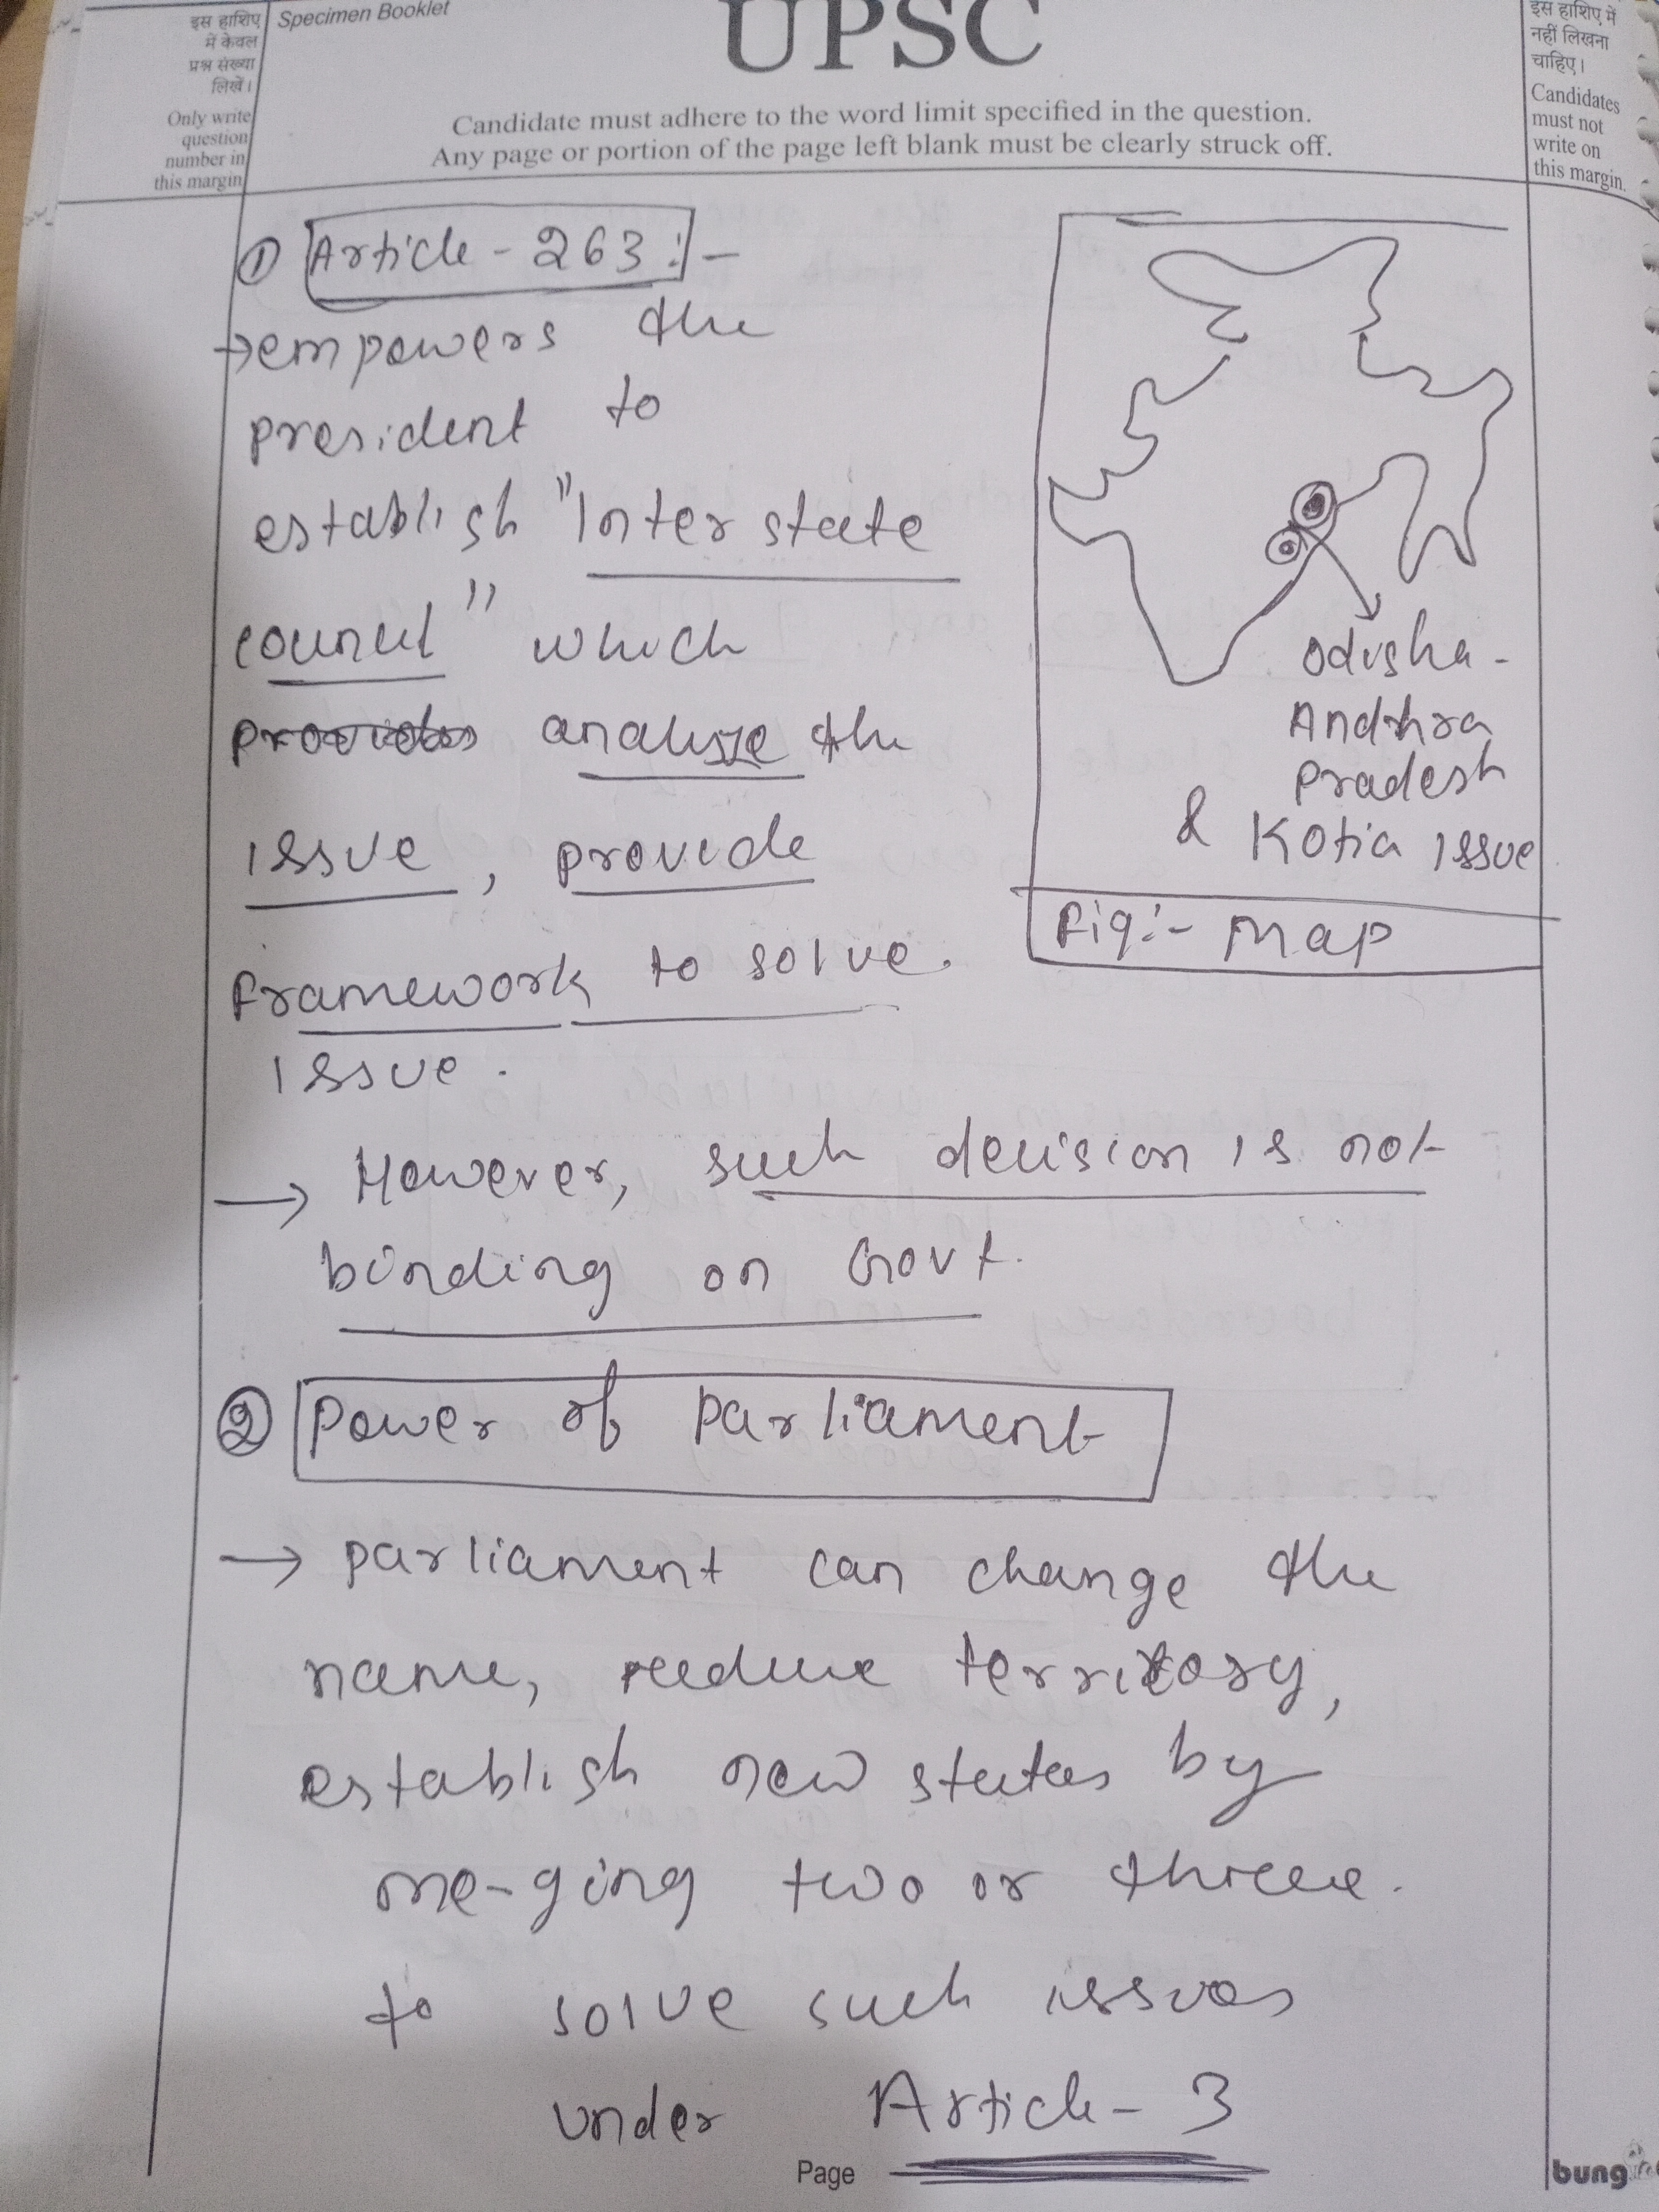 इस हाशिए
में केवल
प्रश्न संख्या
लिखें।
Only write
question
number in
this margin
Specimen Booklet
UPSC
Candidate must adhere to the word limit specified in the question.
Any page or portion of the page left blank must be clearly struck off.
इस हाशिए में
नहीं लिखना
चाहिए।
Candidates
must not
write on
this margin.
① Article - 263 :-
→ empowers the
president to
establish "Inter state
council" which
analyze the
issue, provide
framework to solve.
issue.
Odisha -
Andhra
Pradesh
& Kotia issue
Fig:- Map
→ However, such decision is not
binding on Govt.
② Power of Parliament
→ parliament can change the
name, reduce territory,
establish new states by
me-ging two or threee.
to solve such issues
under Article - 3
Page
bung